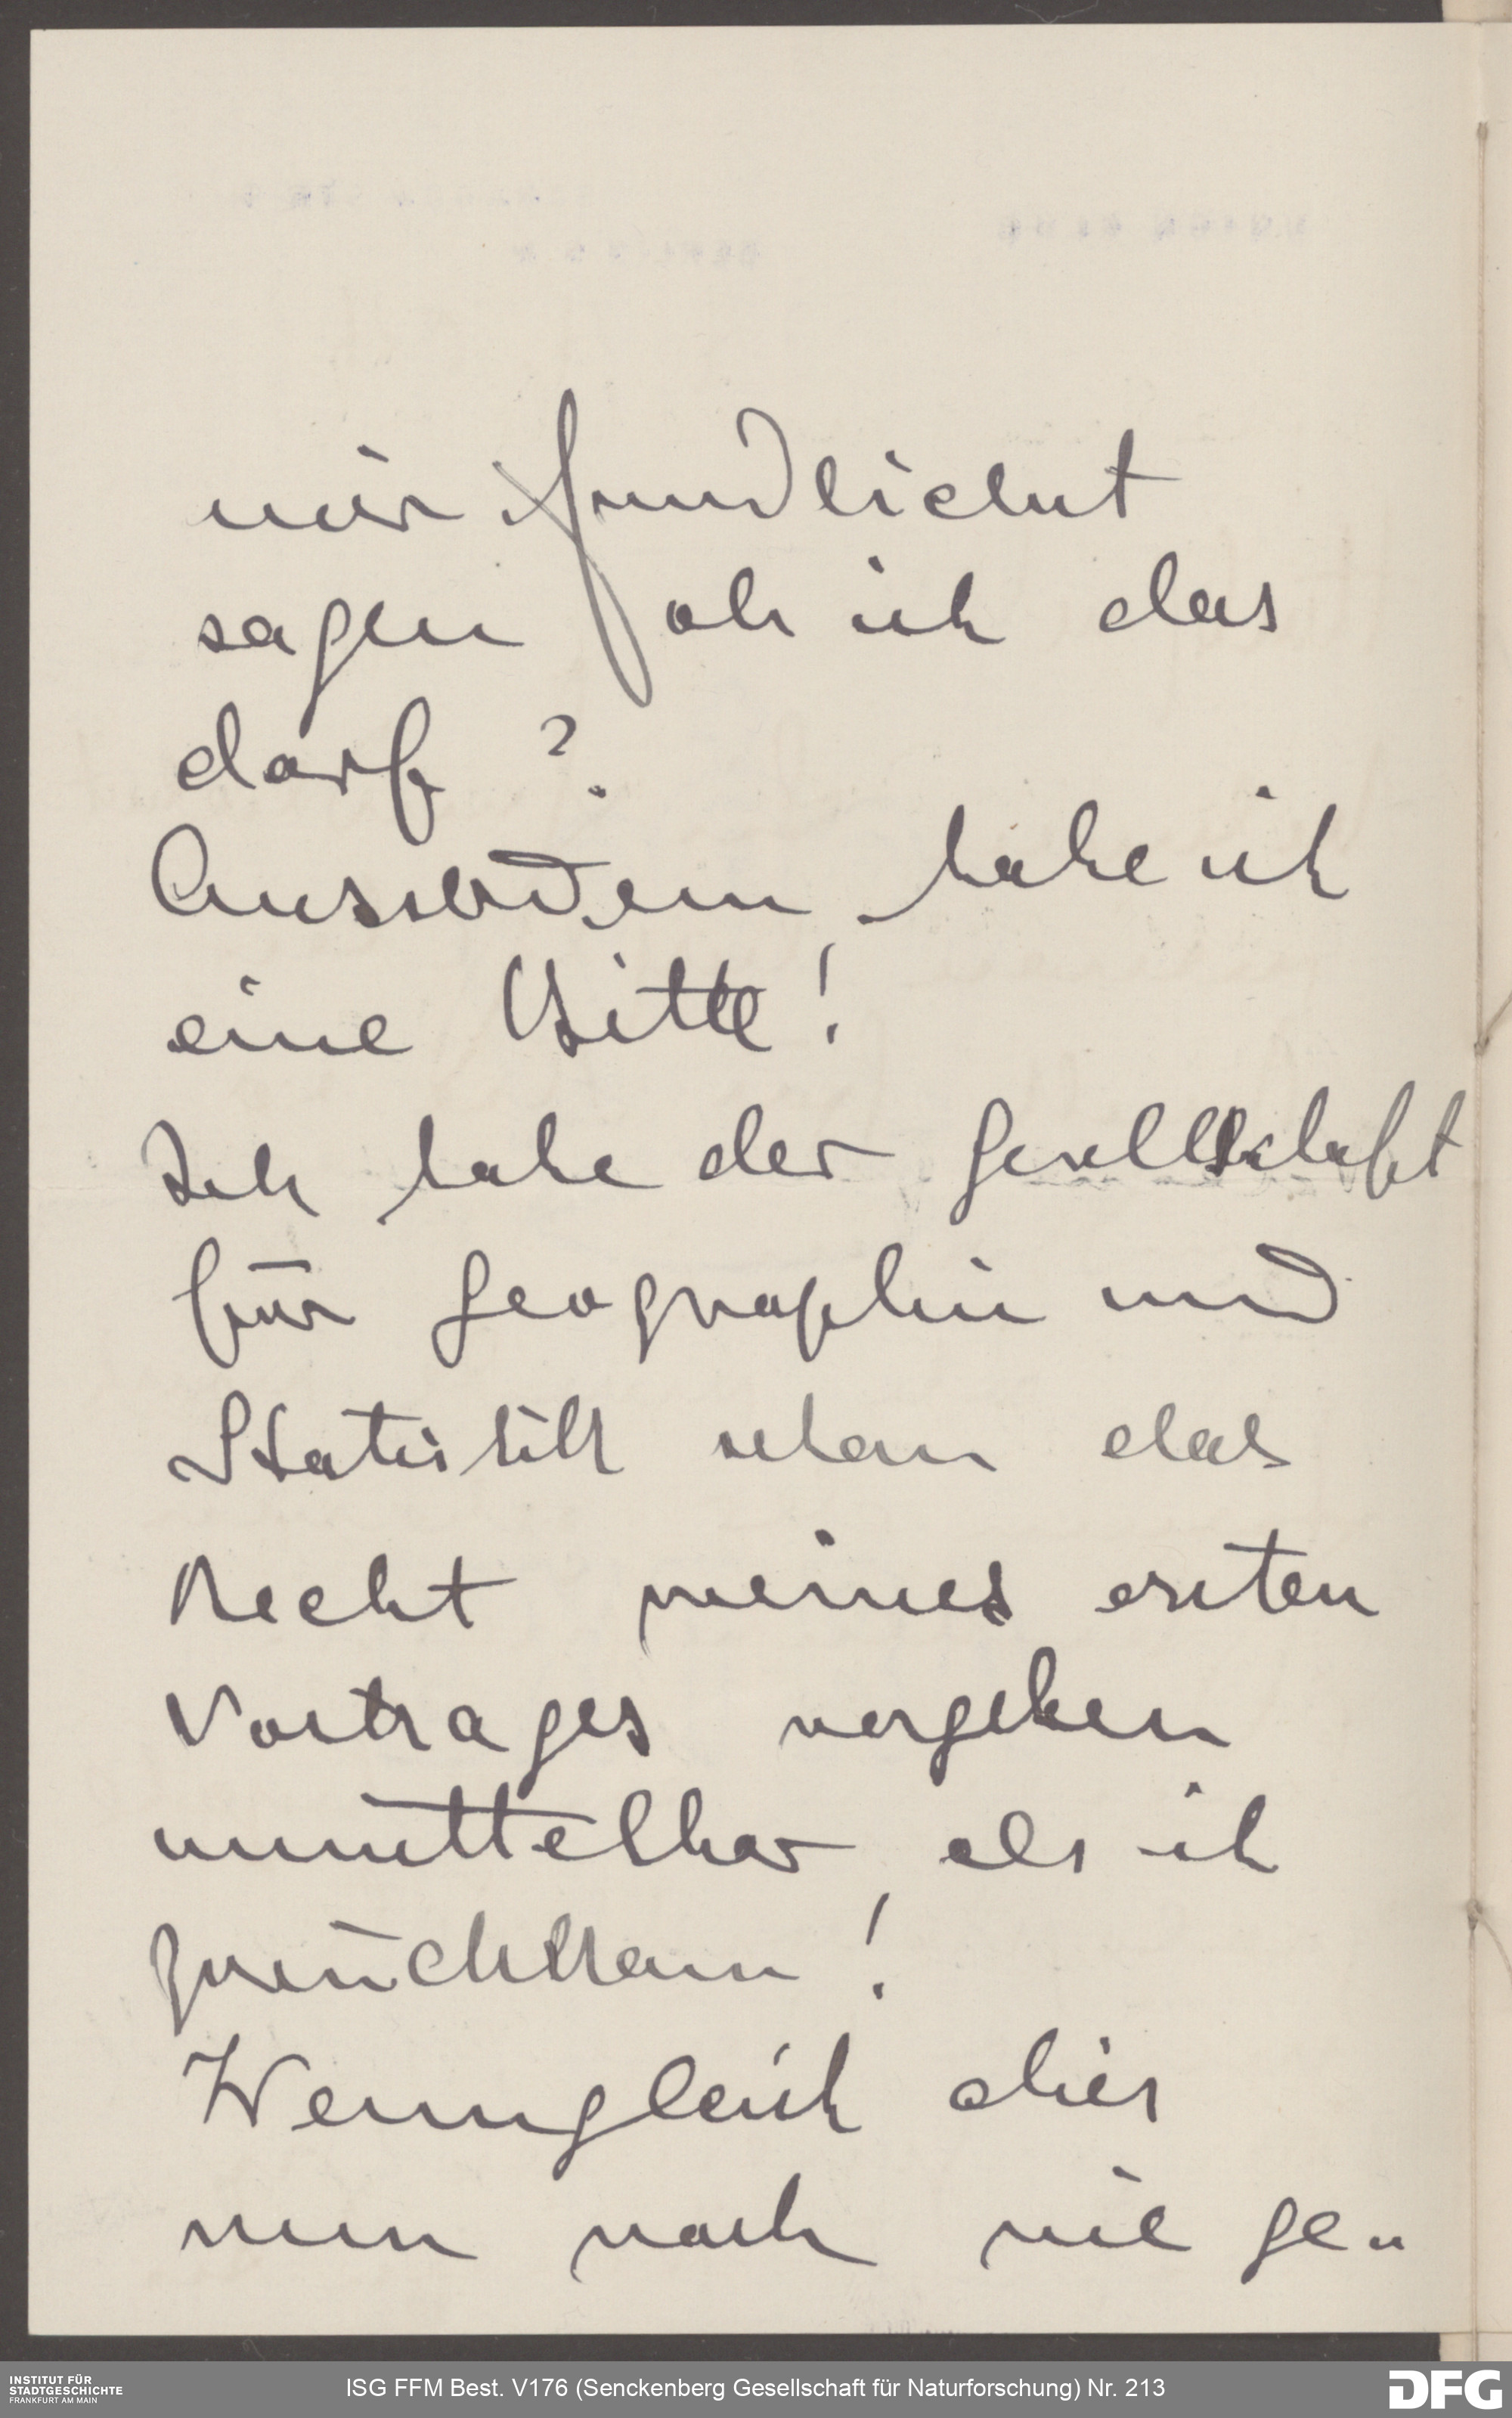 mir freundlichst
sagen ob ich das
darf ?
Ausserdem habe ich
eine Bitte !
Ich habe der Gesellschaft
für Geographie und
Statistik schon das
Recht meines ersten
Vortrages vergeben
unmittelbar, als ich
zurückkam !
Wenngleich dies
nun noch nie ge„
INSTITUT FÜR
STADTGESCHICHTE
FRANKFURT AM MAIN
ISG FFM Best. V176 (Senckenberg Gesellschaft für Naturforschung) Nr. 213
DFG